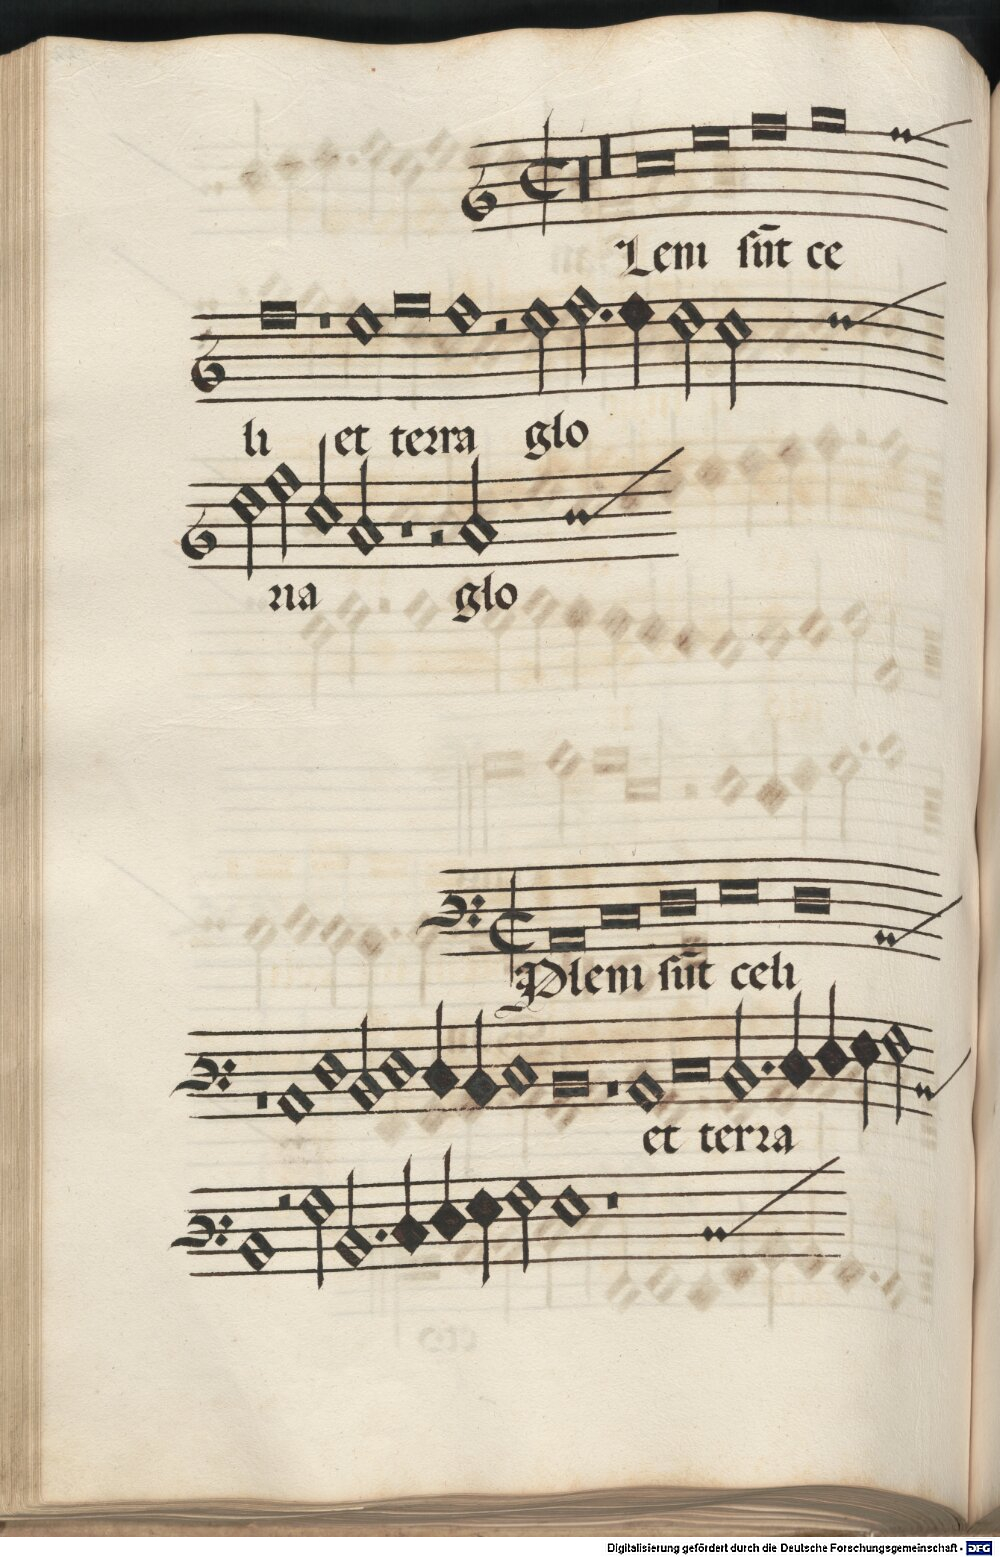 Leni sūt ce
li et terra glo
ria glo
Pleni sūt celi
et terra
Digitalisierung gefördert durch die Deutsche Forschungsgemeinschaft - DFG